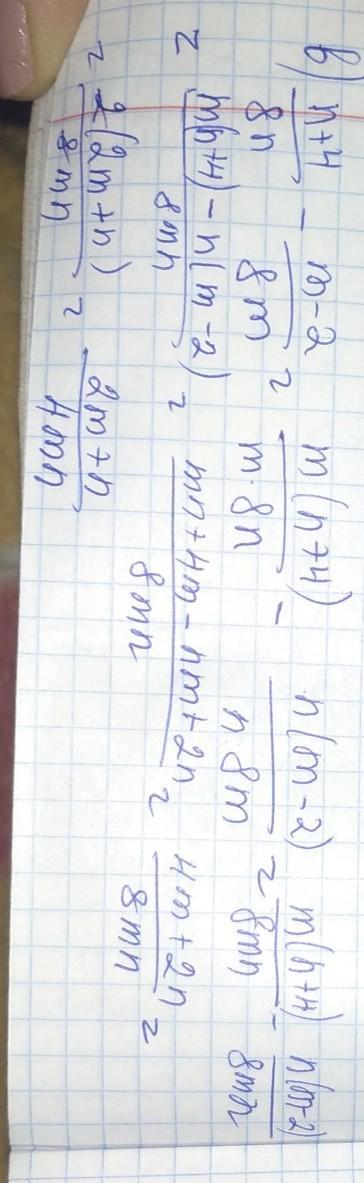 б) (n+4)/(8n) - (m-2)/(8m) = (m(n+4))/(m·8n) - (n(m-2))/(n·8m) = (m(n+4))/(8mn) - (n(m-2))/(8mn)
= (m(n+4) - n(m-2))/(8mn) = (mn+4m-nm+2n)/(8mn) = (4m+2n)/(8mn) =
= (2(2m+n))/(8mn) = (2m+n)/(4mn)